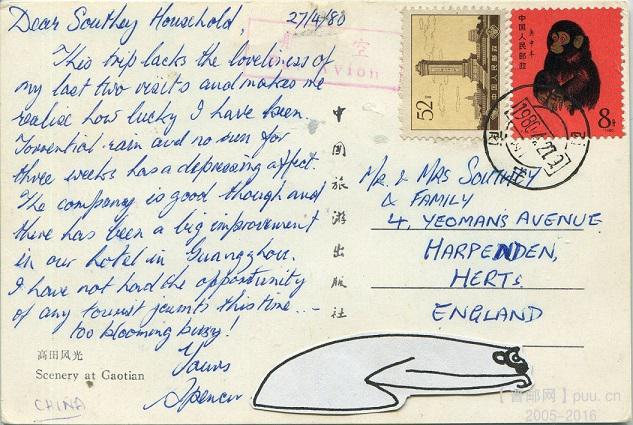 Dear Southey Household,
27/4/80
This trip lacks the loveliness of
my last two visits and makes me
realise how lucky I have been.
Torrential rain and no sun for
three weeks has a depressing affect.
The company is good though and
there has been a big improvement
in our hotel in Guangzhou.
I have not had the opportunity
of any tourist jaunts this time --
too blooming busy!
Yours
Spencer
高田风光
Scenery at Gaotian
CHINA
中国旅游出版社
航空
Avion
52分
中国人民邮政
庚申年
中国人民邮政
8分
1980
1980.4.27
Mr. & Mrs SOUTHEY
& FAMILY
4, YEOMANS AVENUE
HARPENDEN,
HERTS.
ENGLAND
【首邮网】puu.cn
2005-2016